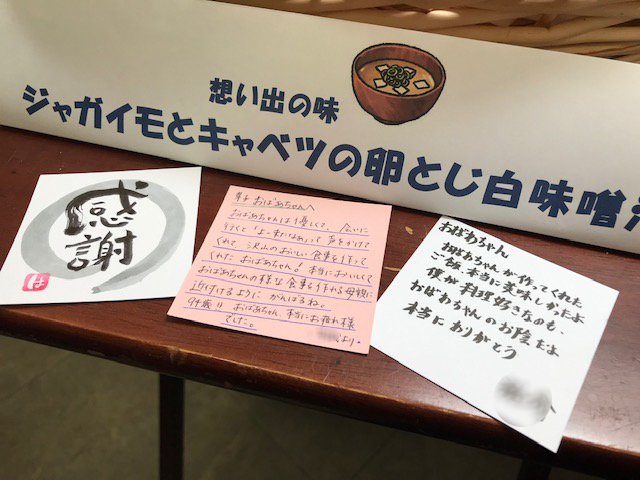 想い出の味
ジャガイモとキャベツの卵とじ白味噌
感謝
は
おばあちゃんへ
おばあちゃんはり優しくて、会いに
行くて「よー来たなあ」って声をかけて
くれて、沢山のおいしい食事を作って
くれたおばあちゃん!本当においしくて
おばあちゃんの様な食事を作れる母親に
近付けるように がんばるね。
94歳 おばあちゃん、本当にお疲れ様
でした。
より。
おばあちゃん
おばあちゃんが作ってくれた
ご飯、本当に美味しかったよ
僕が料理好きなのも、
おばあちゃんのお陰だよ
本当にありがとう